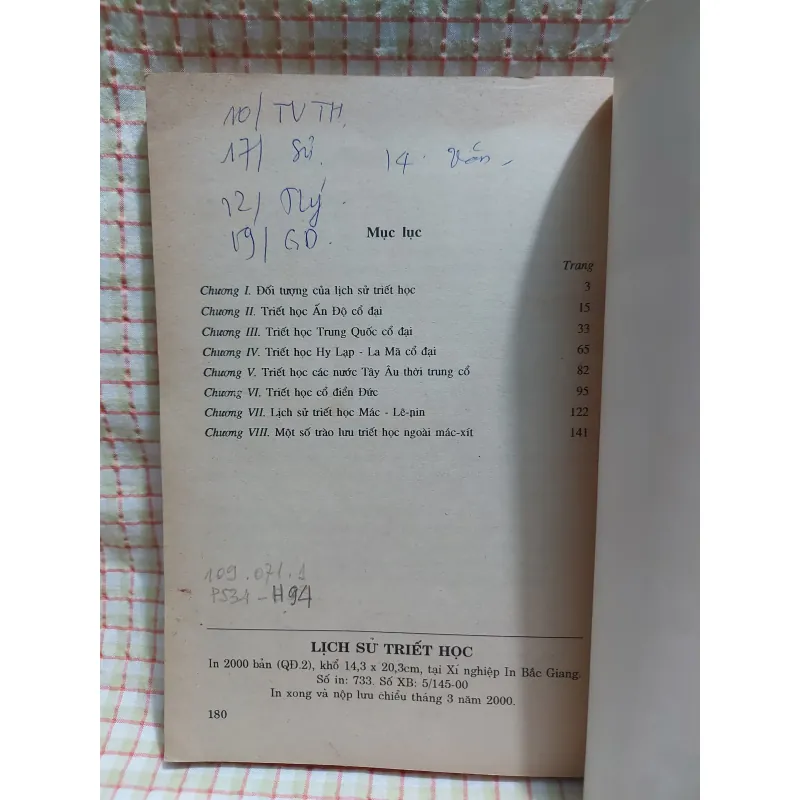 10/ TV TH.
17/ Sử. 14. Văn.
12/ Lý.
19/ GD.
Mục lục
Trang
Chương I. Đối tượng của lịch sử triết học 3
Chương II. Triết học Ấn Độ cổ đại 15
Chương III. Triết học Trung Quốc cổ đại 33
Chương IV. Triết học Hy Lạp - La Mã cổ đại 65
Chương V. Triết học các nước Tây Âu thời trung cổ 82
Chương VI. Triết học cổ điển Đức 95
Chương VII. Lịch sử triết học Mác - Lê-nin 122
Chương VIII. Một số trào lưu triết học ngoài mác-xít 141
109.071.1
P531-H94
LỊCH SỬ TRIẾT HỌC
In 2000 bản (QĐ.2), khổ 14,3 x 20,3cm, tại Xí nghiệp In Bắc Giang.
Số in: 733. Số XB: 5/145-00
In xong và nộp lưu chiểu tháng 3 năm 2000.
180